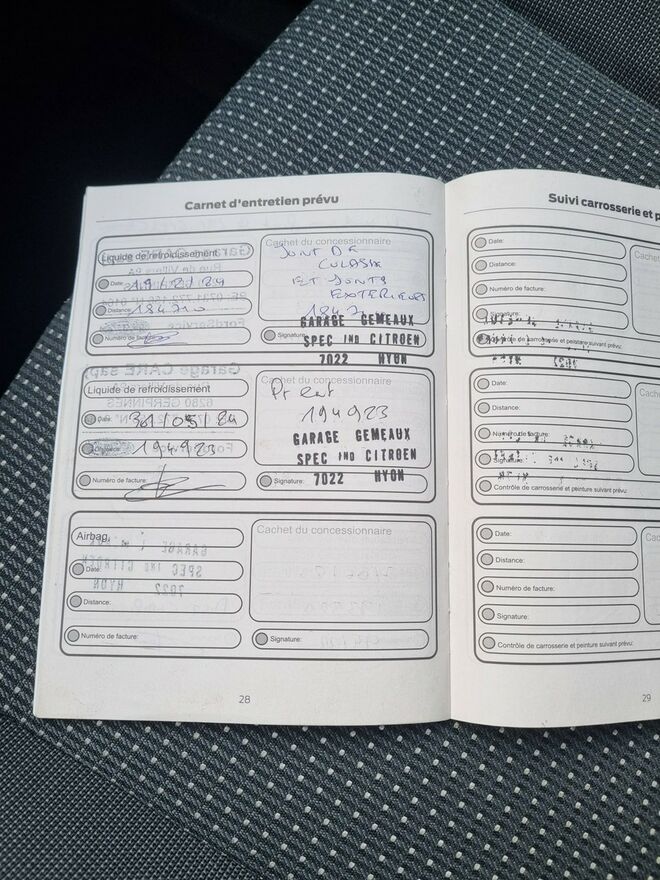 Carnet d'entretien prévu
Liquide de refroidissement
Date:
Distance: 184710
Numéro de facture:
Cachet du concessionnaire
JOINT DE
CULASSE
ET JOINTS
EXTERIEURS
Signature:
GARAGE GEMEAUX
SPEC IND CITROEN
7022 HYON
Liquide de refroidissement
Date: 31/05/24
Distance: 194923
Numéro de facture:
Cachet du concessionnaire
194923
GARAGE GEMEAUX
SPEC IND CITROEN
Signature: 7022 HYON
Airbag
Date:
Distance:
Numéro de facture:
Cachet du concessionnaire
Signature:
28
Suivi carrosserie et p
Date:
Distance:
Numéro de facture:
Signature:
Contrôle de carrosserie et peinture suivant prévu:
Cachet
Date:
Distance:
Numéro de facture:
Signature:
Contrôle de carrosserie et peinture suivant prévu:
Cache
Date:
Distance:
Numéro de facture:
Signature:
Contrôle de carrosserie et peinture suivant prévu:
Cac
29